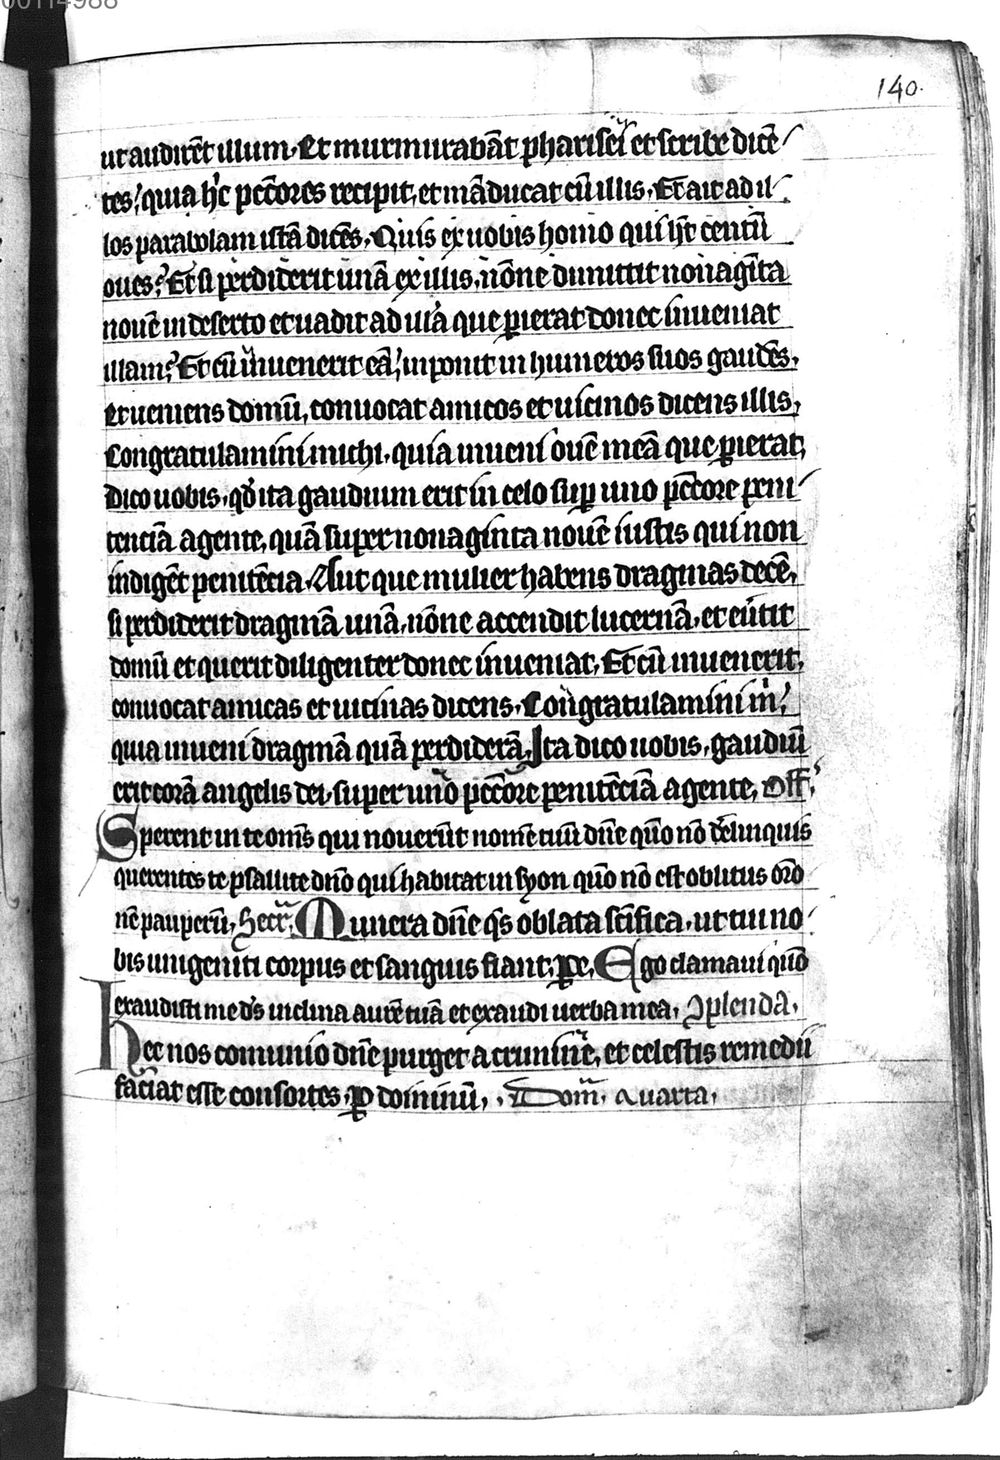 00114988
140.
ut audirēt illum. Et murmurabāt pharisei et scribe dicē
tes, quia hic pctōres recipit, et māducat cū illis. Et ait ad il
los parabolam istā dicēs. Quis ex uobis homo qui hēt centū
oues, Et si perdiderit unā ex illis, nōne dimittit nonagīta
nouē in deserto et uadit ad illā que pierat donec inueniat
illam, Et cū inuenerit eā, inponit in humeros suos gaudēs,
et ueniens domū, conuocat amicos et uicinos dicens illis,
Congratulamini michi, quia inueni ouē meā que pierat,
Dico uobis, qđ ita gaudium erit in celo sup uno pctōre peni
tenciā agente, quā super nonaginta nouē iustis qui non
indigēt penitēcia. Aut que mulier habens dragmas decē,
si perdiderit dragmā unā, nōne accendit lucernā, et euītit
domū et querit diligenter donec inueniat, Et cū inuenerit,
conuocat amicas et uicinas dicens, Congratulamini m̄,
quia inueni dragmā quā perdiderā. Ita dico uobis, gaudiū
erit corā angelis dei, super uno pctōre penitēciā agente, Off,
Sperent in te om̄s qui nouerūt nomē tuū dn̄e quō nō derelinquis
querentes te psallite dn̄o qui habitat in syon quō nō est oblitus orō
nē pauperū, Secr̄. Munera dn̄e q̄s oblata sc̄ifica, ut tui no
bis unigeniti corpus et sanguis fiant, pe, Ego clamaui quō
exaudisti me ds inclina aurē tuā et exaudi uerba mea, 9plenda,
Hec nos comunio dn̄e purget a crimine, et celestis remedii
faciat esse consortes, p dominū, Dom̄. Quarta,